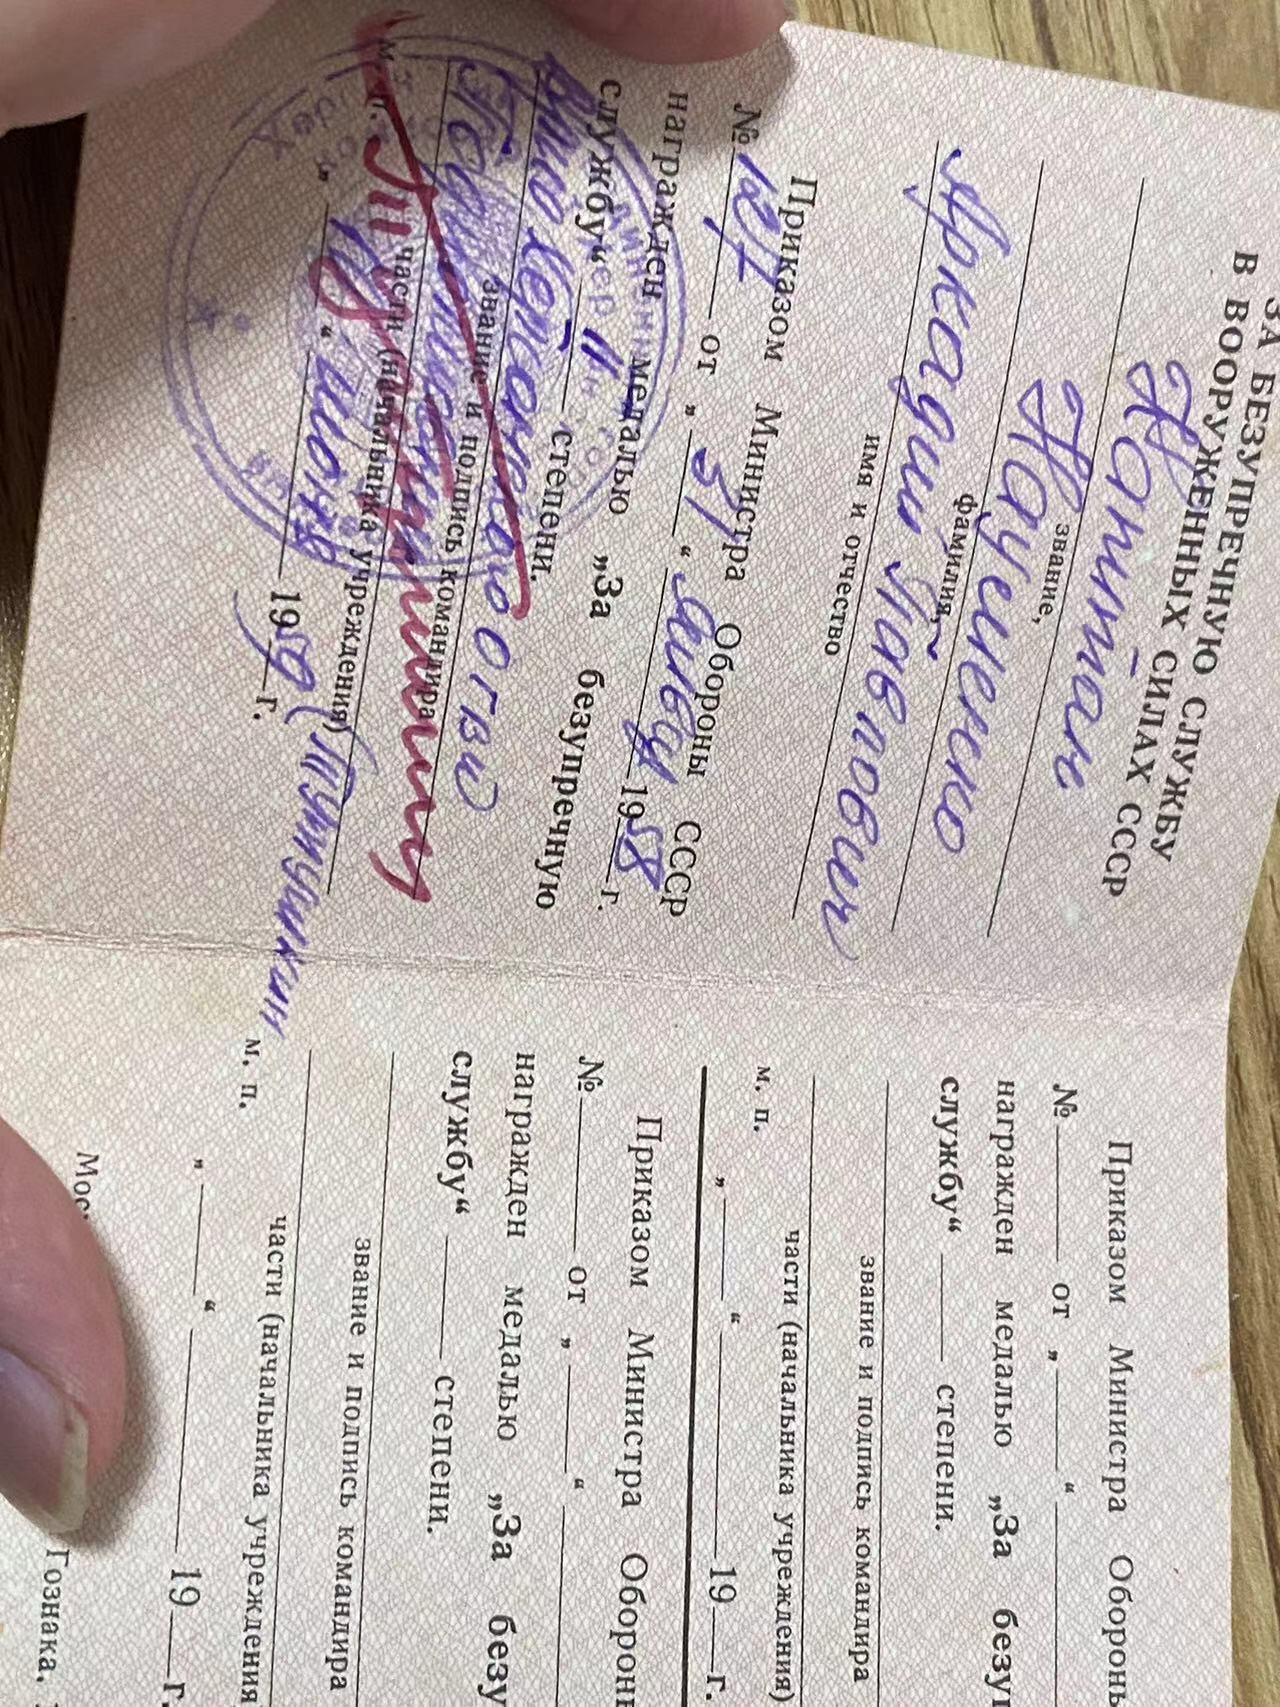 ЗА БЕЗУПРЕЧНУЮ СЛУЖБУ
В ВООРУЖЕННЫХ СИЛАХ СССР
Капитан
звание,
Науменко
фамилия,
Аркадий Павлович
имя и отчество
Приказом Министра Обороны СССР
№ от „31“ 1958 г.
награжден медалью „За безупречную
службу“ II степени.
звание и подпись командира
части (начальника учреждения)
м. п.
„18“ июня 1959 г.
Приказом Министра Оборон
№ от „ “
награжден медалью „За безу
службу“ степени.
звание и подпись командира
части (начальника учреждения)
м. п.
„ “ 19 г.
Приказом Министра Оборон
№ от „ “
награжден медалью „За безу
службу“ степени.
звание и подпись командира
части (начальника учреждения
м. п.
„ “ 19 г.
Мос
Гознака.